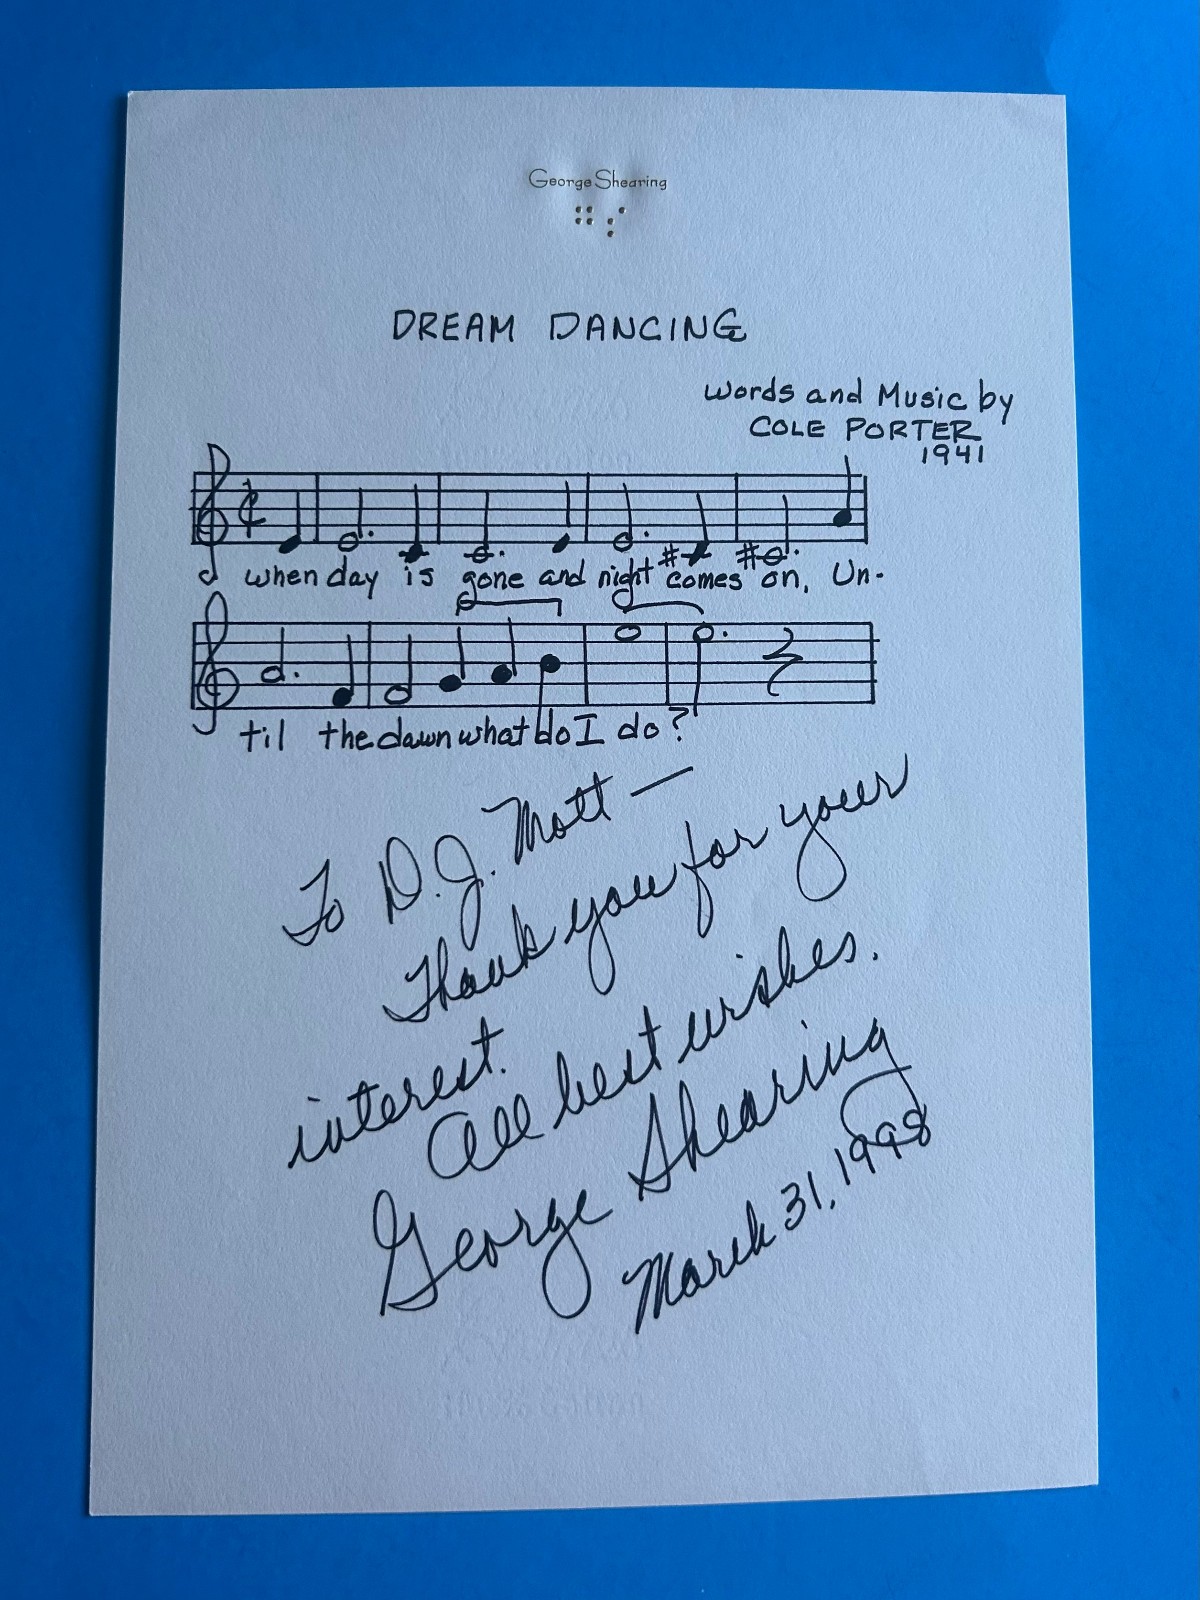 George Shearing
⠛⠎
DREAM DANCING
words and Music by
COLE PORTER
1941
when day is gone and night comes on, Un-
til the dawn what do I do?
To D.J. Mott —
Thank you for your
interest.
All best wishes.
George Shearing
March 31, 1998